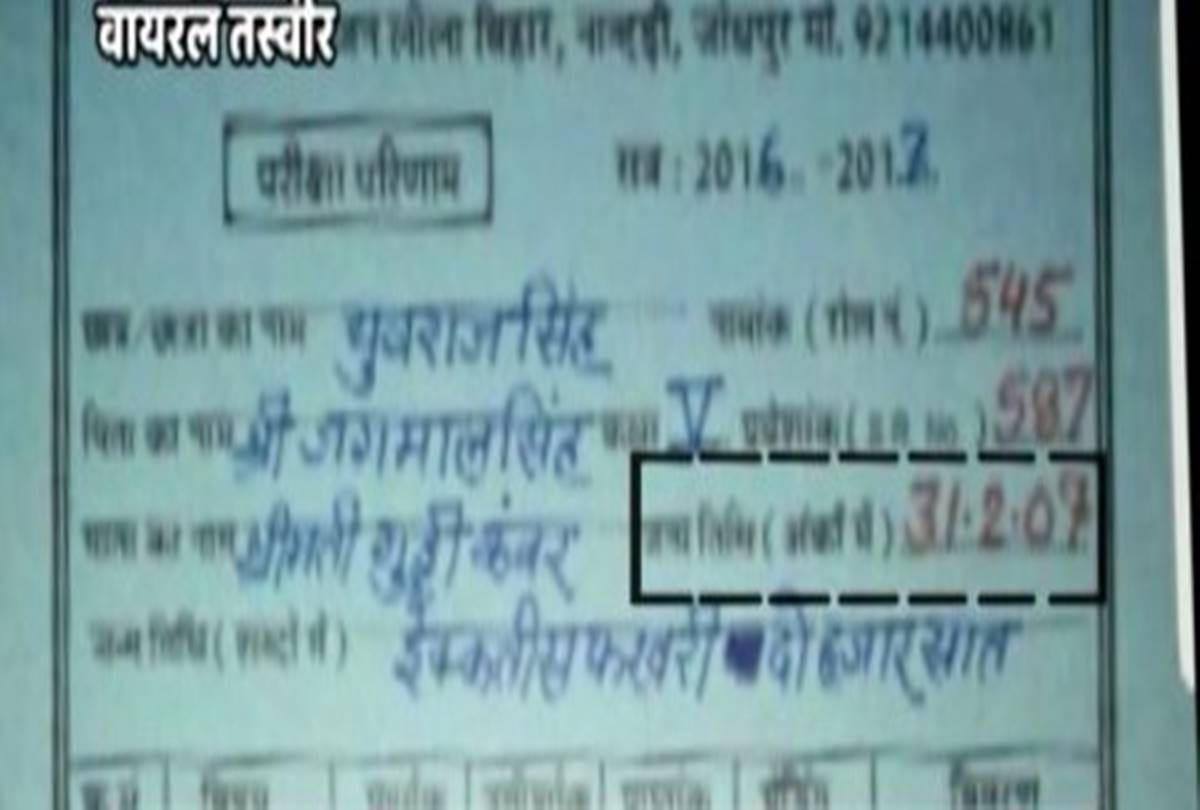 वायरल तस्वीर
लीला विहार, नान्दड़ी, जोधपुर मो. 9214400861
परीक्षा परिणाम सत्र : 2016 -2017
छात्र/छात्रा का नाम युवराज सिंह नामांक ( रोल नं. ) 545
पिता का नाम श्री जगमाल सिंह कक्षा V प्रवेशांक ( S.R. No. ) 587
माता का नाम श्रीमती गुड्डी कंवर जन्म तिथि ( अंकों में ) 31.2.07
जन्म तिथि ( शब्दों में ) ईक्कतीस फरवरी दो हजार सात
क्र.सं. विषय पूर्णांक प्राप्तांक